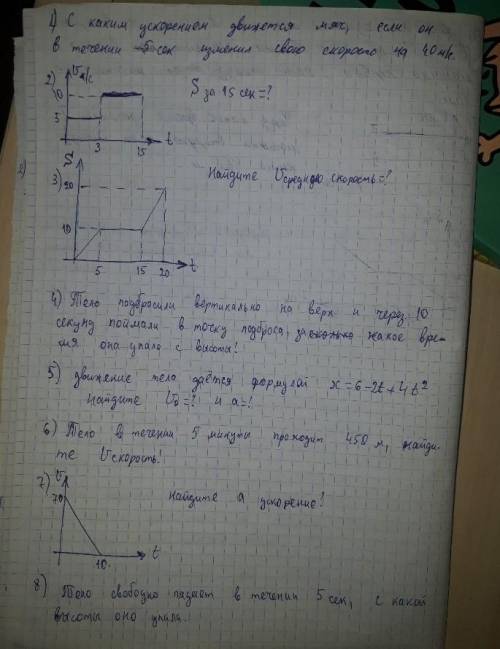 1) С каким ускорением движется мяч, если он
в течении 5 сек изменил свого скорость на 40 м/с.
2) V м/с
S за 15 сек =?
10
5
3 15 t
3)
Найдите Vсреднюю скорость=?
20
10
5 15 20 t
4) Тело подбросили вертикально на вверх и через 10
секунд поймали в точку подброса, за какое вре-
мя она упало с высоты!
5) движение тела даётся формулой x = 6 - 2t + 4t²
Найдите V₀=? и a=?
6) Тело в течении 5 минуты проходит 450 м, найди-
те Vскорость!
7) V
Найдите a ускорение!
70
10 t
8) Тело свободно падает в течении 5 сек, с какой
высоты оно упала.